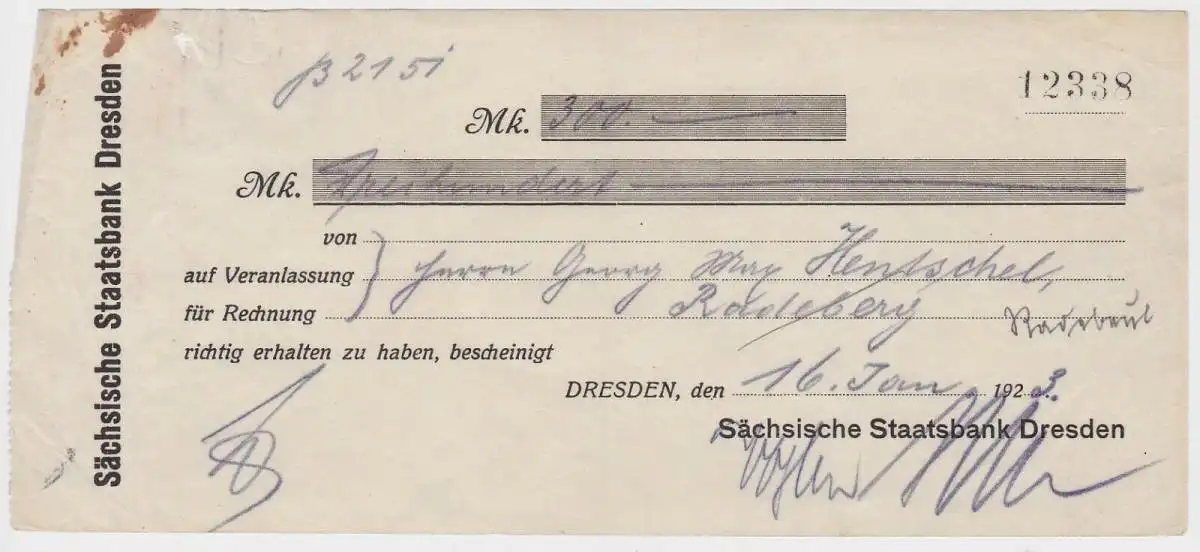 Sächsische Staatsbank Dresden
B 2151
12338
Mk. 300.
Mk. Dreihundert
von
auf Veranlassung Herrn Georg Max Hentschel,
für Rechnung Radeberg Radebeul
richtig erhalten zu haben, bescheinigt
DRESDEN, den 16. Jan 1923.
Sächsische Staatsbank Dresden